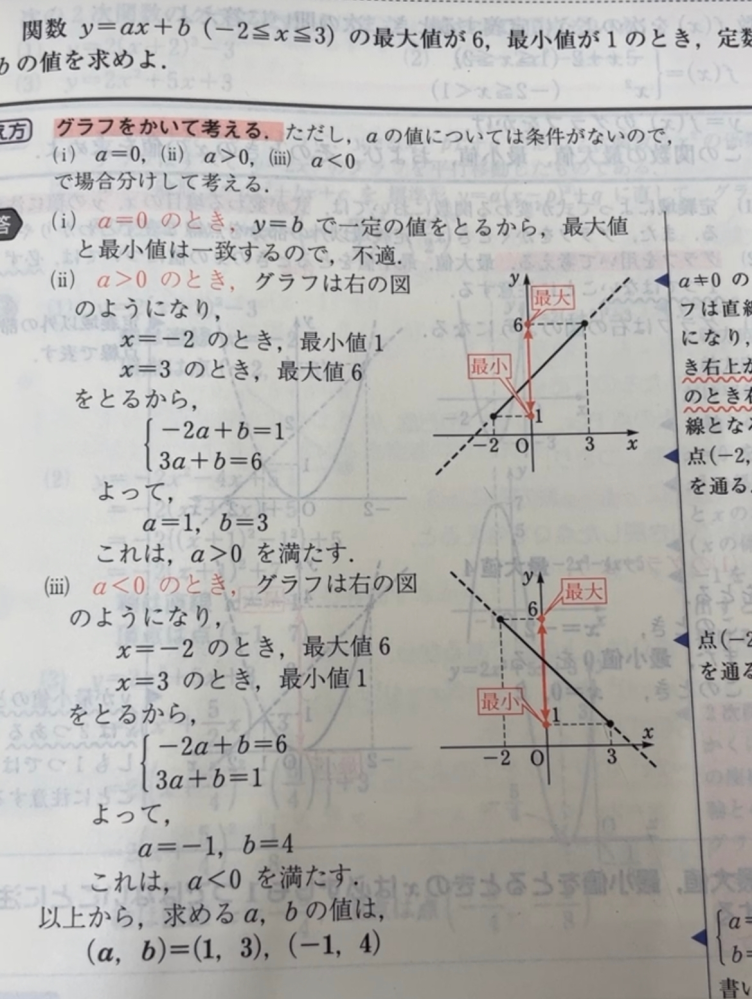 関数 y=ax+b (−2≦x≦3) の最大値が6，最小値が1のとき，定数
bの値を求めよ．
え方
グラフをかいて考える．ただし，aの値については条件がないので，
(i) a=0, (ii) a>0, (iii) a<0
で場合分けして考える．
答
(i) a=0 のとき，y=b で一定の値をとるから，最大値
と最小値は一致するので，不適．
(ii) a>0 のとき，グラフは右の図
のようになり，
x=−2 のとき，最小値1
x=3 のとき，最大値6
をとるから，
−2a+b=1
3a+b=6
よって，
a=1，b=3
これは，a>0 を満たす．
y
最大
6
最小
1
−2 O 3 x
a≠0 の
フは直線
になり，
き右上が
のとき右
線となる
点(−2,
を通る．
(iii) a<0 のとき，グラフは右の図
のようになり，
x=−2 のとき，最大値6
x=3 のとき，最小値1
をとるから，
−2a+b=6
3a+b=1
よって，
a=−1，b=4
これは，a<0 を満たす．
y
最大
6
最小
1
x
−2 O 3
点(−2
を通る
以上から，求める a，b の値は，
(a, b)=(1, 3), (−1, 4)
a=
b=
書い